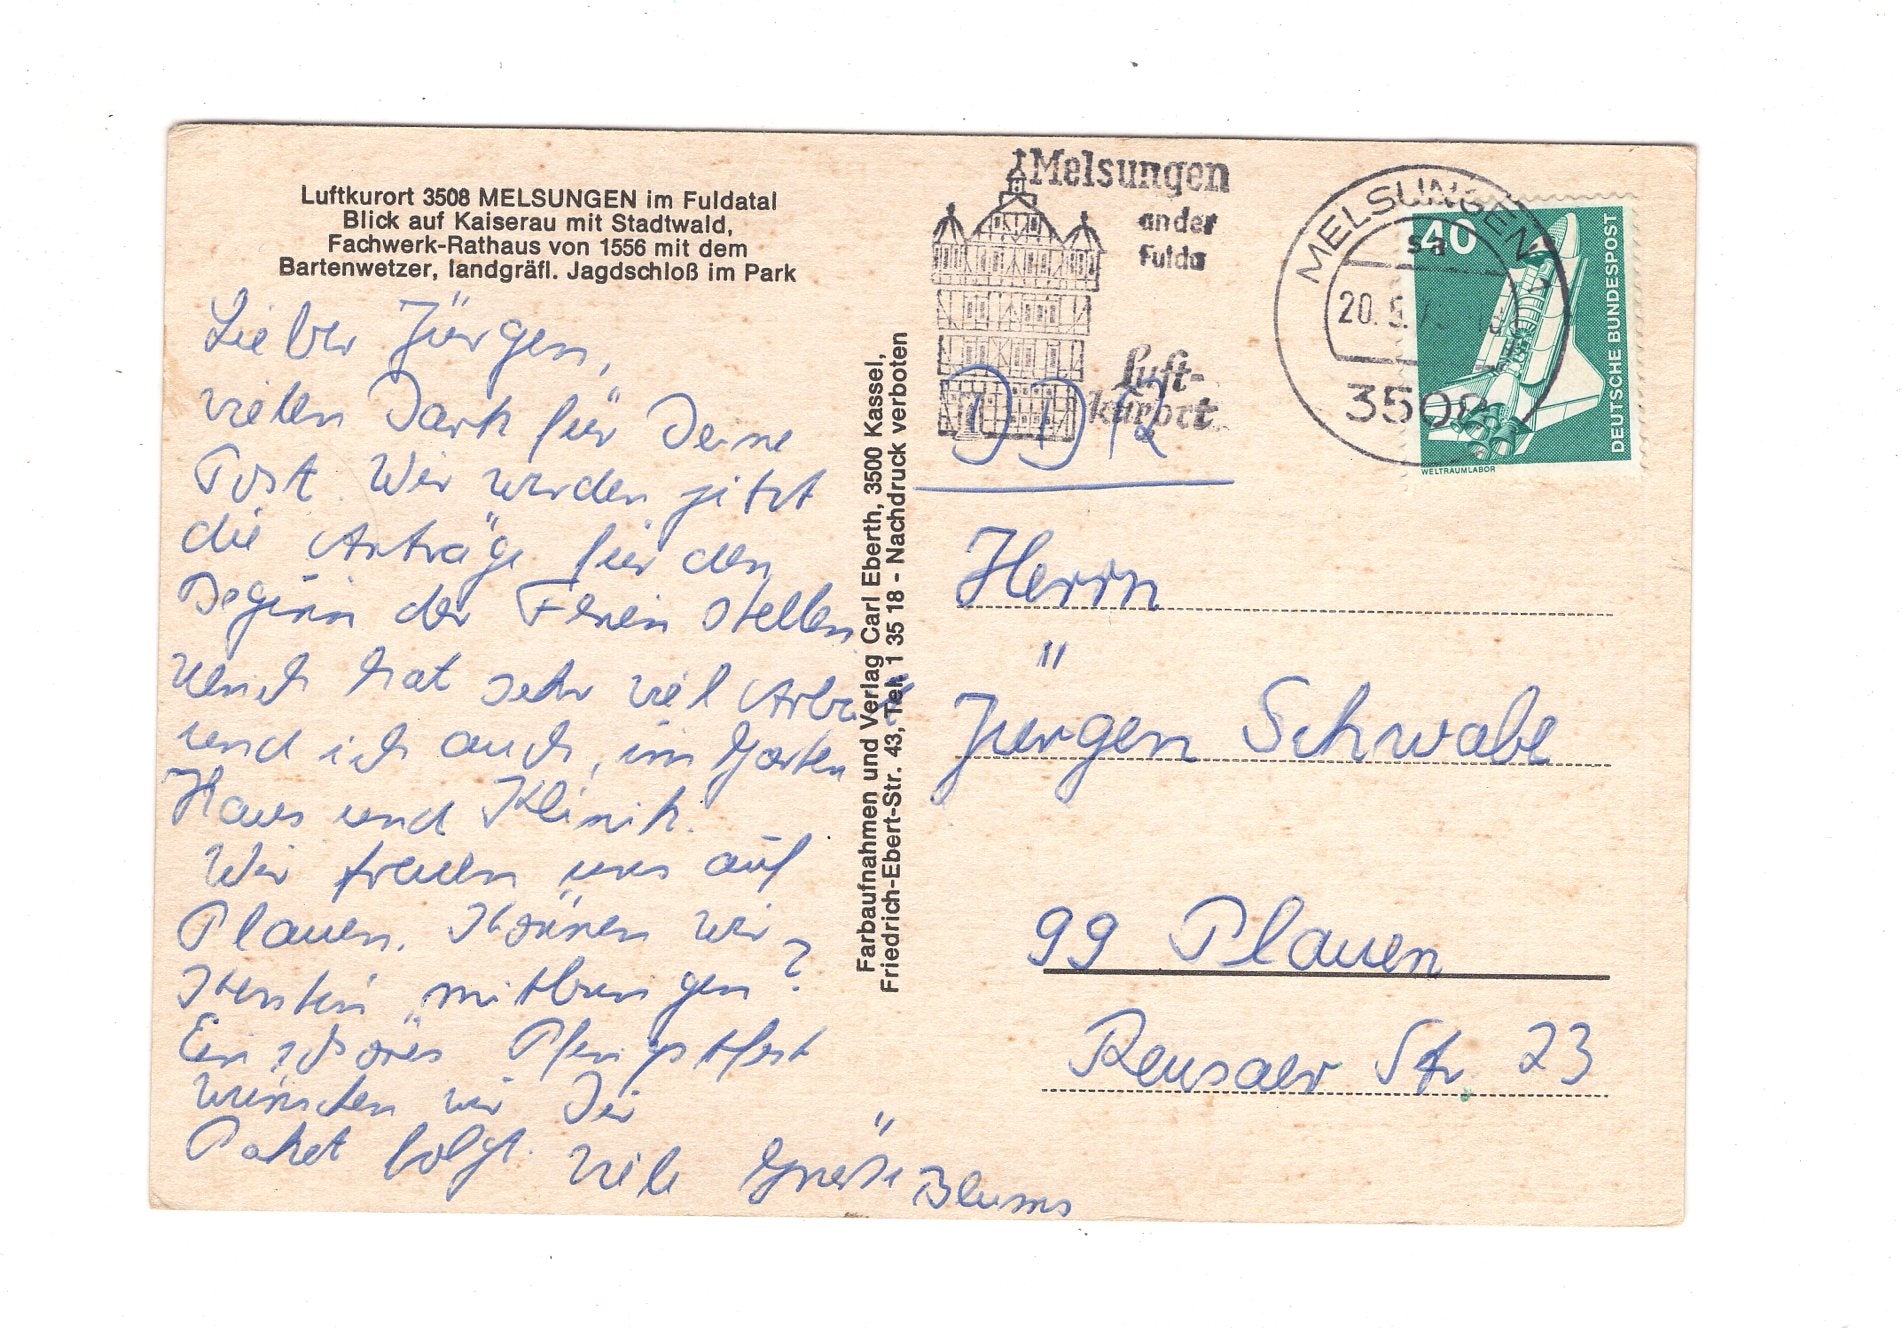 Luftkurort 3508 MELSUNGEN im Fuldatal
Blick auf Kaiserau mit Stadtwald,
Fachwerk-Rathaus von 1556 mit dem
Bartenwetzer, landgräfl. Jagdschloß im Park
Lieber Jürgen,
vielen Dank für Deine
Post. Wir werden jetzt
die Anträge für den
Beginn der Ferien stellen
Ulrich hat sehr viel Arbeit
und ich auch, im Garten
Haus und Klinik.
Wir freuen uns auf
Plauen. Können wir
Kerstin "mitbringen"?
Ein schönes Pfingstfest
wünschen wir Dir
Paket folgt. Viele Grüße Blums
Farbaufnahmen und Verlag Carl Eberth, 3500 Kassel,
Friedrich-Ebert-Str. 43, Tel. 1 35 18 - Nachdruck verboten
Melsungen
an der
Fulda
Luft-
kurort
MELSUNGEN 1
sa
20. 5. 18
3508
40
DEUTSCHE BUNDESPOST
WELTRAUMLABOR
DDR
Herrn
Jürgen Schwabe
99 Plauen
Reusaer Str. 23